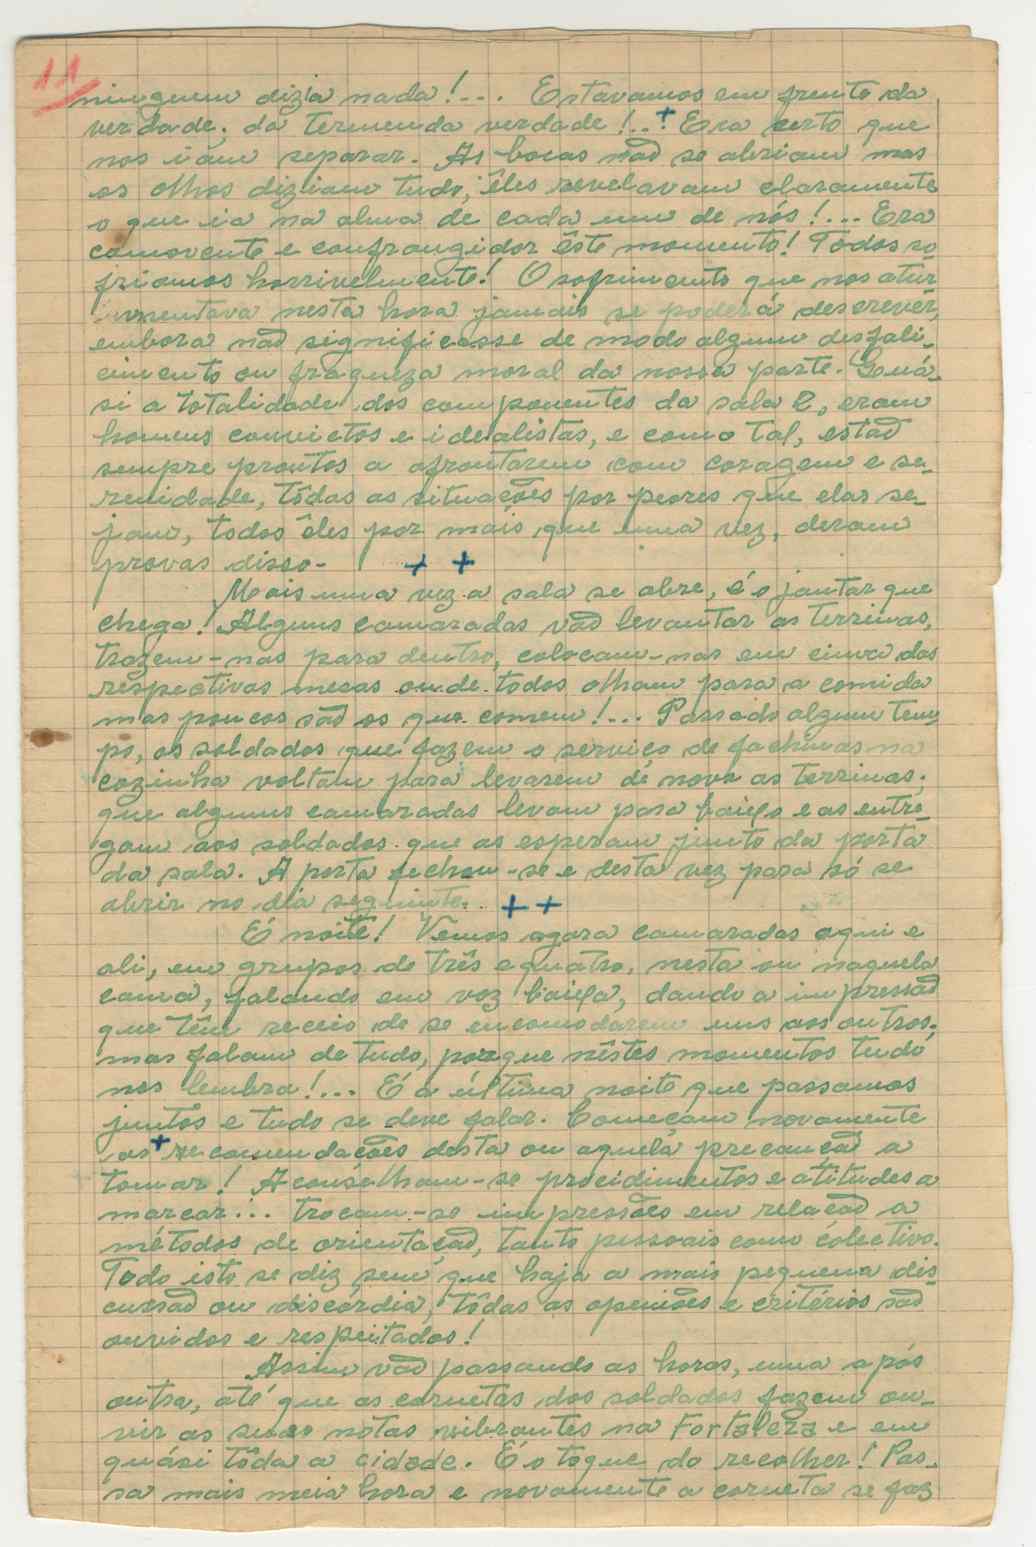 11
ninguem dizia nada!... Estavamos em frente da
verdade, da tremenda verdade!..+ Era certo que
nos iám separar. As bocas não se abriam mas
os olhos diziam tudo, êles revelavam claramente
o que ia na alma de cada um de nós!... Era
comovente e confrangidor êste momento! Todos so-
friamos horrivelmente! O sofrimento que nos ator-
mentava nesta hora jamais se poderá descrever,
embora não significasse de modo algum desfali-
cimento ou fraqueza moral da nossa parte. Quá-
si a totalidade dos componentes da sala 2, eram
homens convictos e idealistas, e como tal, estão
sempre prontos a afrontarem com coragem e se-
renidade, tôdas as situações por peores que elas se-
jam, todos êles por mais que uma vez, deram
provas disso- + +
Mais uma vez a sala se abre, é o jantar que
chega! Alguns camaradas vão levantar as terrinas,
trazem-nas para dentro, colocam-nas em cima das
respectivas mesas onde todos olham para a comida
mas poucos são os que comem!... Passado algum tem-
po, os soldados que fazem o serviço de fachinas na
cozinha voltam para levarem de novo as terrinas,
que alguns camaradas levam para baixo e as entre-
gam aos soldados que as esperam junto da porta
da sala. A porta fechou-se e desta vez para só se
abrir no dia seguinte. ++
É noite! Vemos agora camaradas aqui e
ali, em grupos de três e quatro, nesta ou naquela
cama, falando em voz baixa, dando a impressão
que têm receio de se encomodarem uns aos outros,
mas falam de tudo, porque nêstes momentos tudo
nos lembra!... É a última noite que passamos
juntos e tudo se deve falar. Começam novamente
as + recomendações desta ou aquela precaução a
tomar! Aconselham-se procidimentos e atitudes a
marcar... trocam-se impressões em relação a
métodos de orientação, tanto pessoais como colectivo.
Todo isto se diz sem que haja a mais pequena dis-
cussão ou discórdia, tôdas as openiões e critérios são
ouvidos e respeitados!
Assim vão passando as horas, uma após
outra, até que as cornetas dos soldados fazem ou-
vir as suas notas vibrantes na Fortaleza e em
quási tôda a cidade. É o toque do recolher! Pas-
sa mais meia hora e novamente a corneta se faz